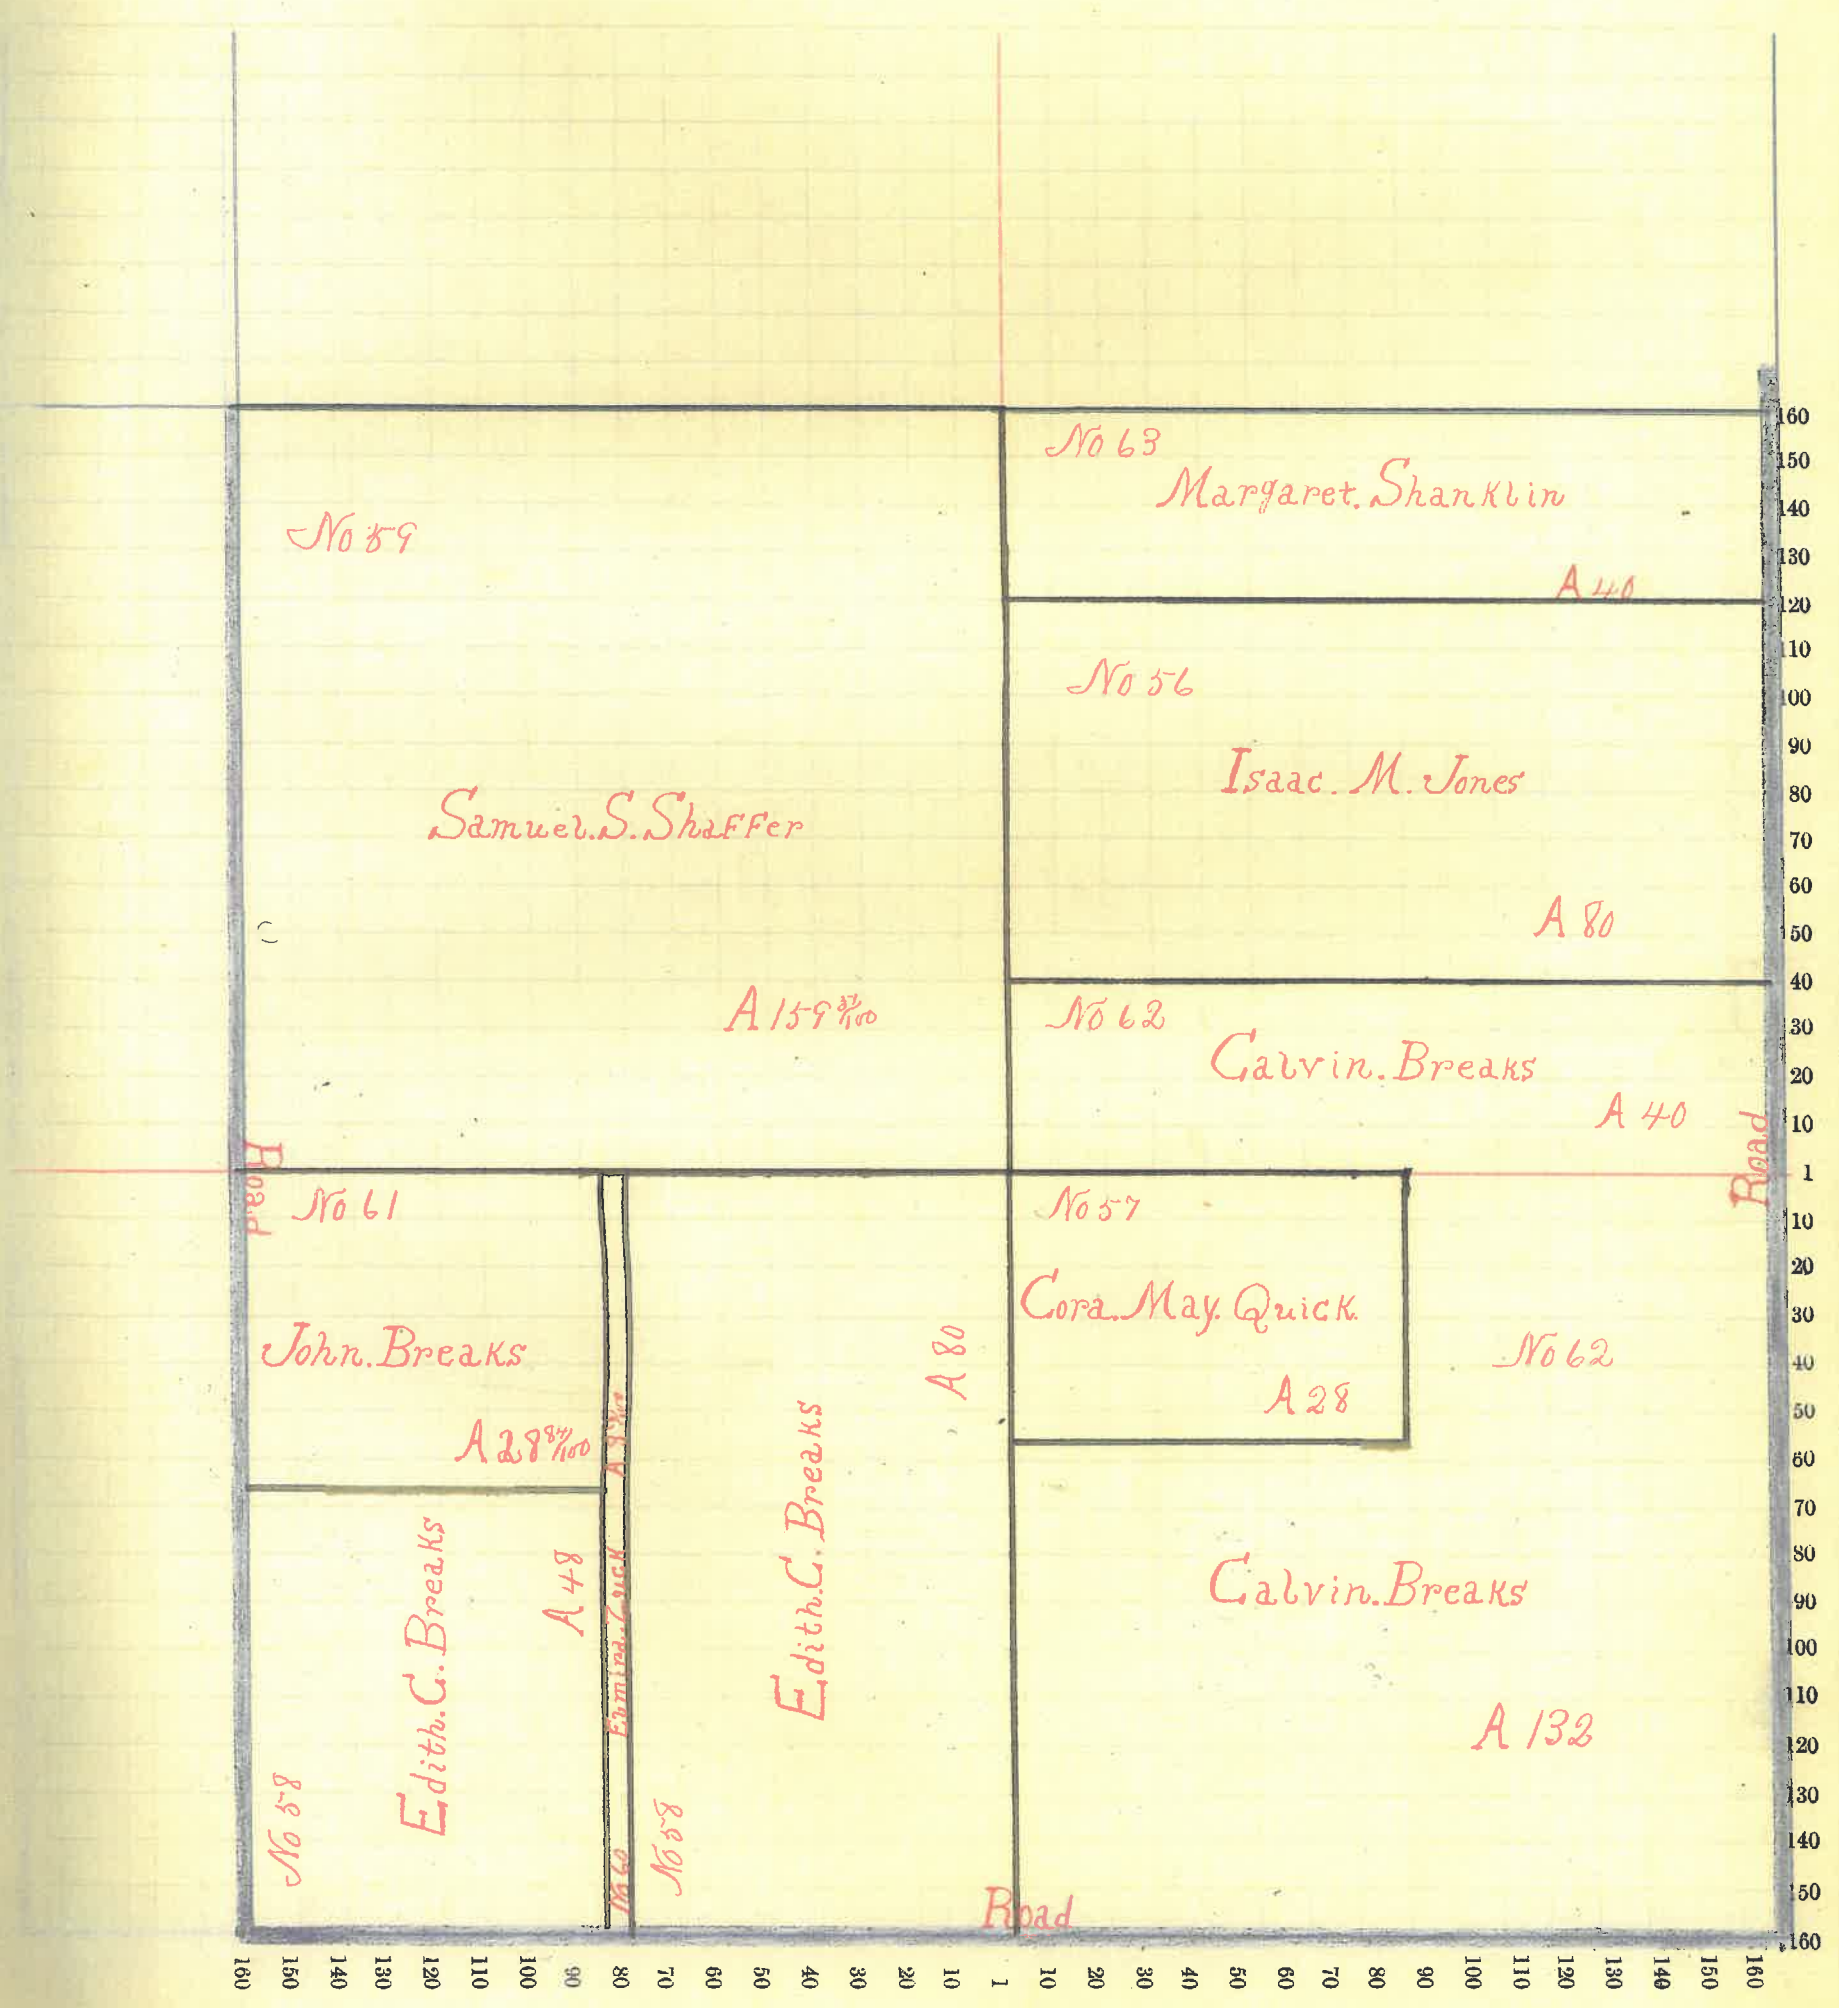 No 63
Margaret. Shanklin
A 40
No 59
Samuel. S. Shaffer
A 159 37/100
No 56
Isaac. M. Jones
A 80
No 62
Calvin. Breaks
A 40
Road
Road
No 61
John. Breaks
A 28 84/100
No 58
Edith. C. Breaks
A 48
No 60
A 8
No 58
Edith. C. Breaks
A 80
No 57
Cora. May. Quick.
A 28
No 62
Calvin. Breaks
A 132
Road
160
150
140
130
120
110
100
90
80
70
60
50
40
30
20
10
1
10
20
30
40
50
60
70
80
90
100
110
120
130
140
150
160
160 150 140 130 120 110 100 90 80 70 60 50 40 30 20 10 1 10 20 30 40 50 60 70 80 90 100 110 120 130 140 150 160